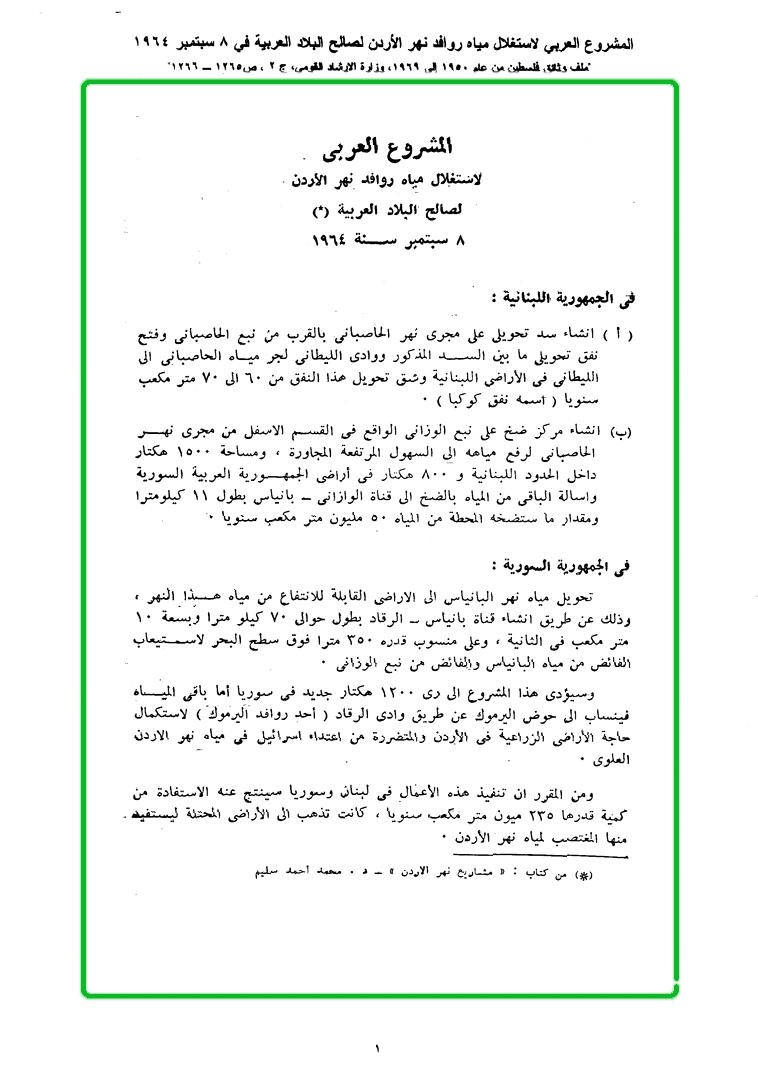 المشروع العربي لاستغلال مياه روافد نهر الأردن لصالح البلاد العربية في ٨ سبتمبر ١٩٦٤
"ملف وثائق فلسطين من عام ١٩٥٠ إلى ١٩٦٩، وزارة الارشاد القومى، ج ٢ ، ص١٢٦٥ – ١٢٦٦"
المشروع العربى
لاستغلال مياه روافد نهر الأردن
لصالح البلاد العربية (*)
٨ سبتمبر سنة ١٩٦٤
فى الجمهورية اللبنانية :
( أ ) انشاء سد تحويلى على مجرى نهر الحاصبانى بالقرب من نبع الحاصبانى وفتح
نفق تحويلى ما بين السد المذكور ووادى الليطانى لجر مياه الحاصبانى الى
الليطانى فى الأراضى اللبنانية وشق تحويل هذا النفق من ٦٠ الى ٧٠ متر مكعب
سنويا ( اسمه نفق كوكبا ) ٠
(ب) انشاء مركز ضخ على نبع الوزانى الواقع فى القسم الاسفل من مجرى نهر
الحاصبانى لرفع مياهه الى السهول المرتفعة المجاورة ، ومساحة ١٥٠٠ هكتار
داخل الحدود اللبنانية و ٨٠٠ هكتار فى أراضى الجمهورية العربية السورية
واسالة الباقى من المياه بالضخ الى قناة الوازانى – بانياس بطول ١١ كيلومترا
ومقدار ما ستضخه المحطة من المياه ٥٠ مليون متر مكعب سنويا ٠
فى الجمهورية السورية :
تحويل مياه نهر البانياس الى الاراضى القابلة للانتفاع من مياه هذا النهر ،
وذلك عن طريق انشاء قناة بانياس – الرقاد بطول حوالى ٧٠ كيلو مترا وبسعة ١٠
متر مكعب فى الثانية ، وعلى منسوب قدره ٣٥٠ مترا فوق سطح البحر لاستيعاب
الفائض من مياه البانياس والفائض من نبع الوزانى ٠
وسيؤدى هذا المشروع الى رى ١٢٠٠ هكتار جديد فى سوريا أما باقى المياه
فينساب الى حوض اليرموك عن طريق وادى الرقاد ( أحد روافد اليرموك ) لاستكمال
حاجة الأراضى الزراعية فى الأردن والمتضررة من اعتداء اسرائيل فى مياه نهر الاردن
العلوى ٠
ومن المقرر ان تنفيذ هذه الأعمال فى لبنان وسوريا سينتج عنه الاستفادة من
كمية قدرها ٢٣٥ ميون متر مكعب سنويا ، كانت تذهب الى الأراضى المحتلة ليستفيد
منها المغتصب لمياه نهر الأردن ٠
(*) من كتاب : « مشاريع نهر الاردن » – د ٠ محمد أحمد سليم
١